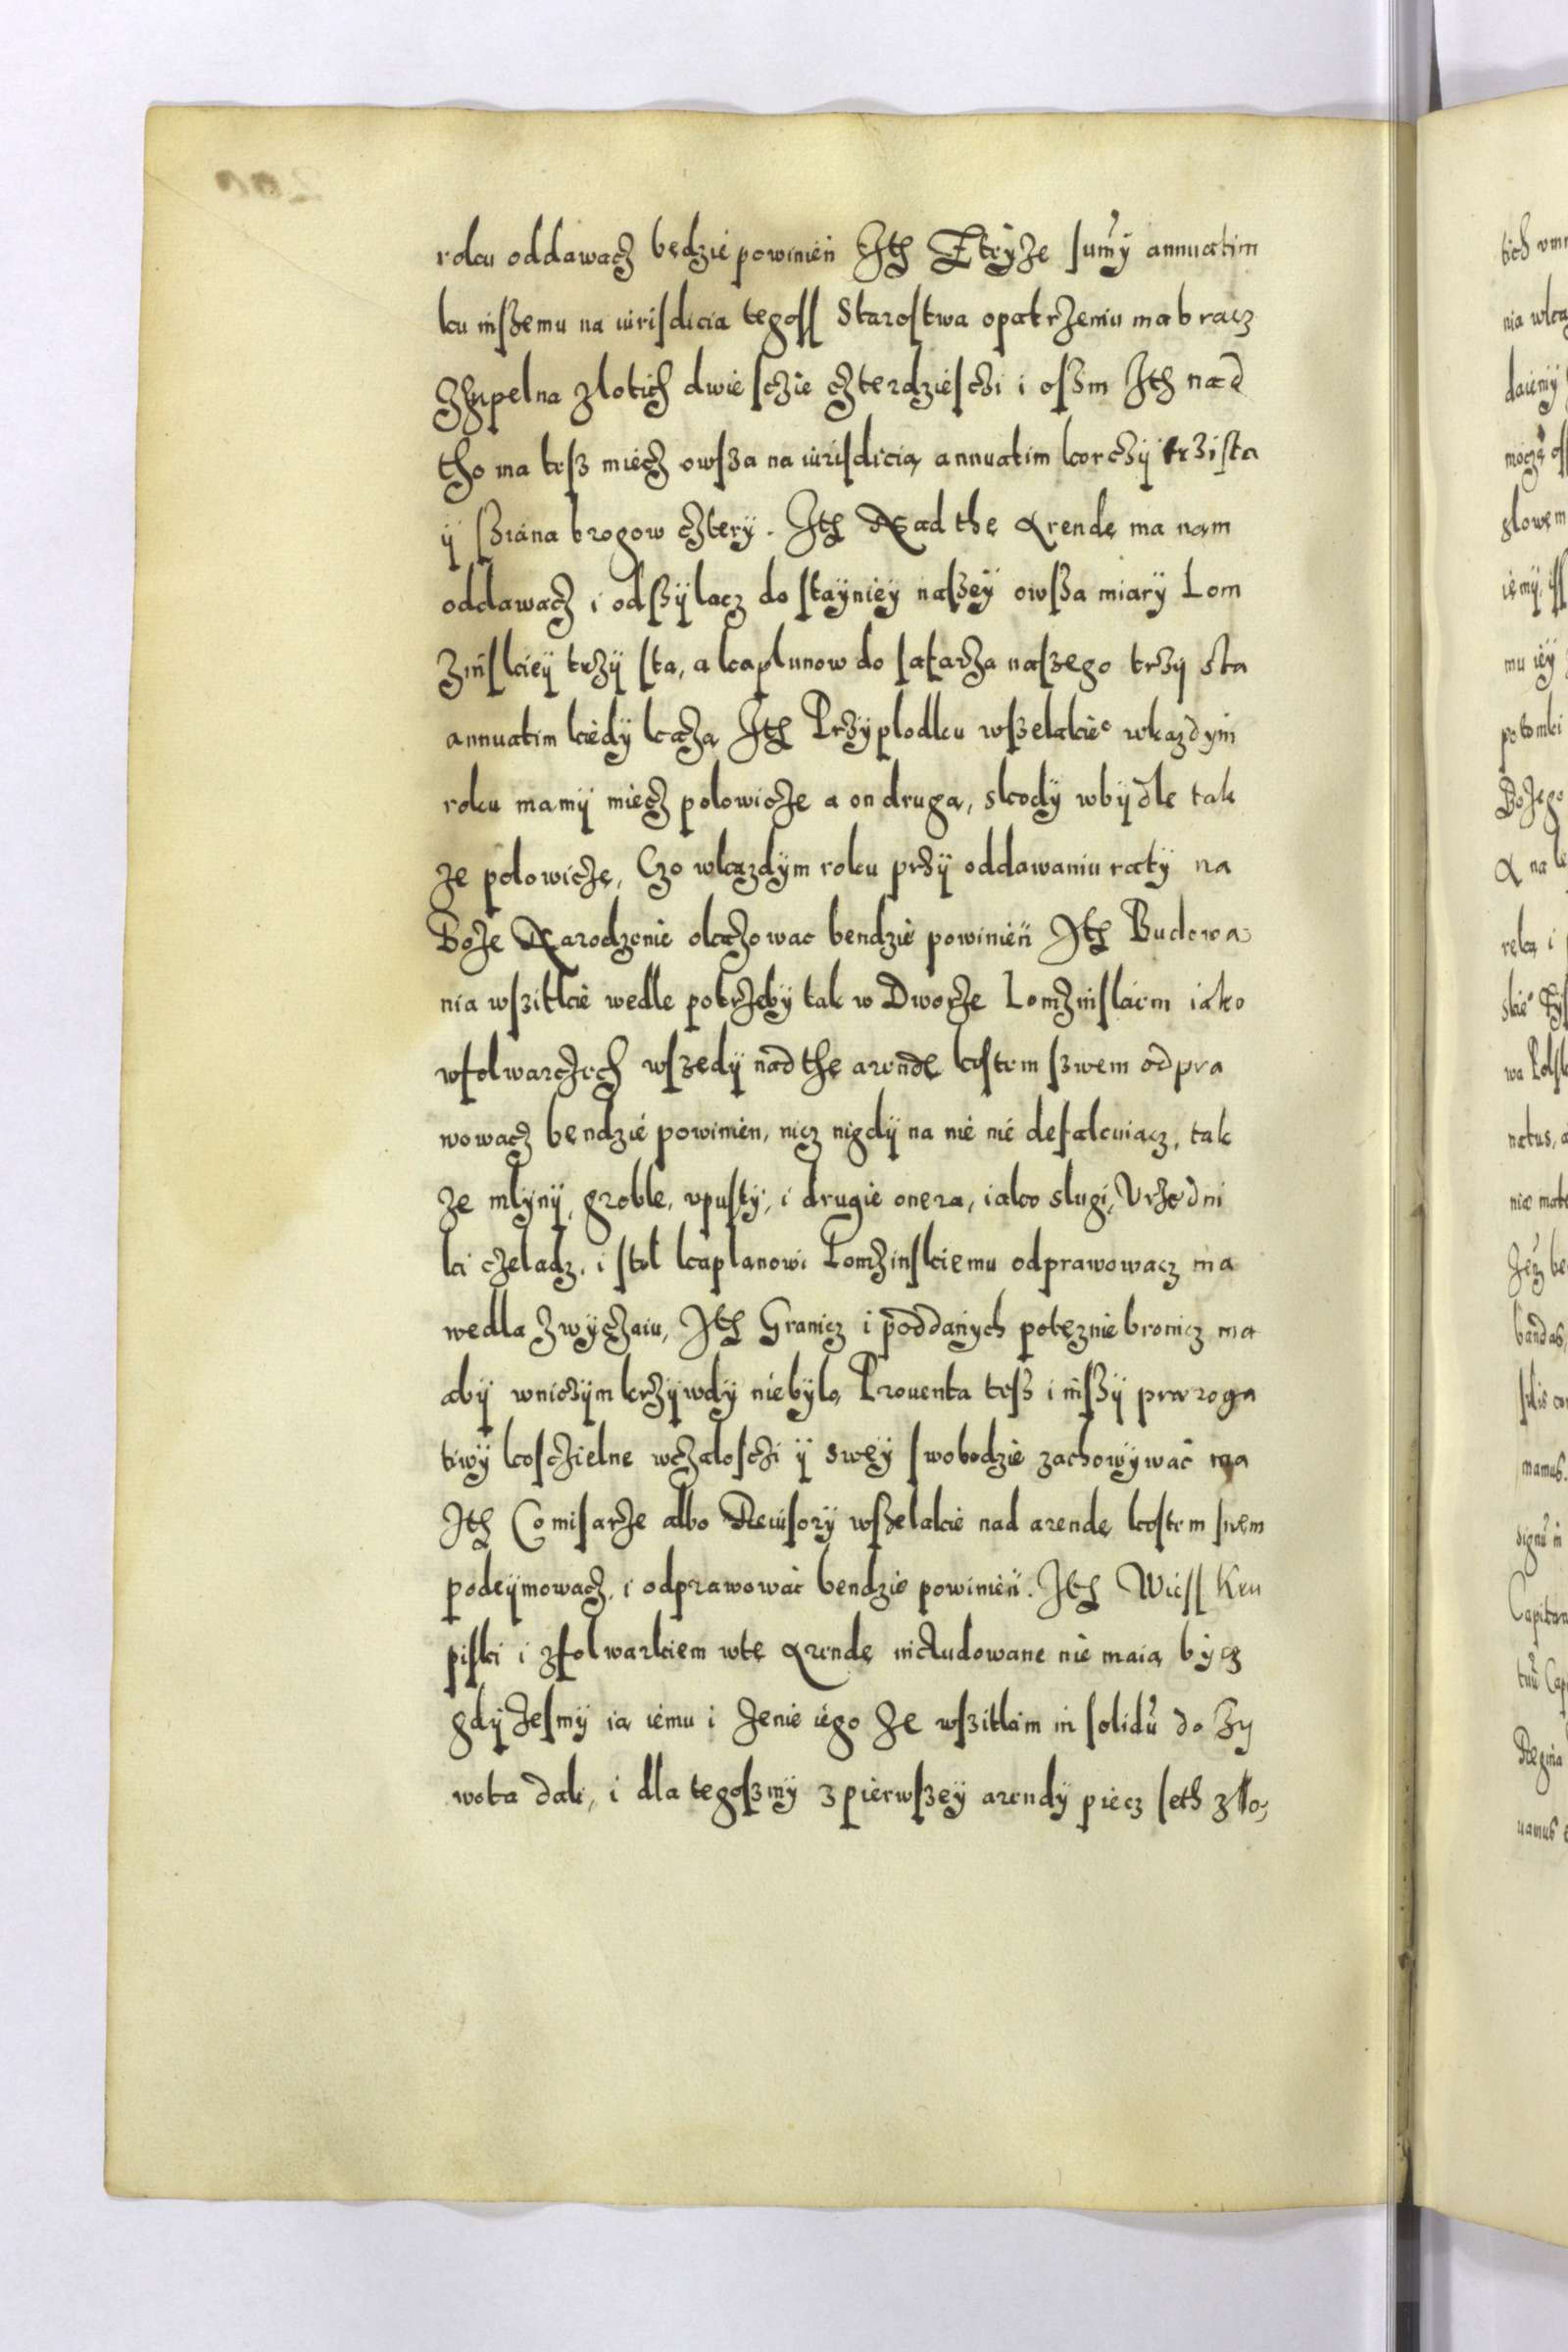 roku oddawacz będzie powinien Ith Z teyże sumy annuatim
ku inszemu na iurisdicia tegoss Starostwa opatrzeniu ma bracz
Zupelna zlotich dwie sczie czterdziesczi i oszm Ith nad
tho ma tesz miecz owsza na iurisdicią annuatim korczÿ trzista
ÿ sziana brogow cztery. Ith Nad thę Arendę ma nam
oddawacz i odsÿlacz do staÿnieÿ naszeÿ owsza miarÿ Lom
zinskieÿ trzÿ sta, a kaplunow do safarza naszego trzÿ sta
annuatim kiedÿ każą Ith Przÿplodku wszelakie° wkazdÿm
roku mamÿ miecz polowicze a on drugą, skodÿ wbÿdle tak
ze polowiczę, Czo wkazdÿm roku przÿ oddawaniu ratÿ na
Boże Narodzenie okazowac bendzie powinien Ith Budowa
nia wszitkie wedle potrzebÿ tak w Dworze Lomzinskiem iako
wfolwarczech wszedÿ nad thę arendę kostem szwem odpra
wowacz bendzie powinien, nicz nigdÿ na nie nie defalcuiacz, tak
ze mlÿnÿ, groble, vpustÿ, i drugie onera, iako slugi, Vrzedni
ki czeladz, i stol kaplanowi Lomzinskiemu odprawowacz ma
wedla zwÿczaiu, Ith Granicz i poddanÿch potęznie bronicz ma
abÿ wniczÿm krzÿwdÿ niebÿlo, Prouenta tesz i inszÿ praeroga
tiwÿ kosczielne wczalosczi ÿ sweÿ swobodzie zachowÿwac ma
Ith Comisarze albo Reuisorÿ wszelakie nad arendę kostem swem
podeÿmowacz, i odprawowac bendzie powinien. Ith Wiess Kru
piski i zfolwarkiem wtę Arendę includowane nie maią bÿcz
gdÿżesmÿ ią iemu i żenie iego ze wszitkim in solidū do zÿ
wota dali, i dla tegoszmÿ z pierwszeÿ arendÿ piecz seth zlo,